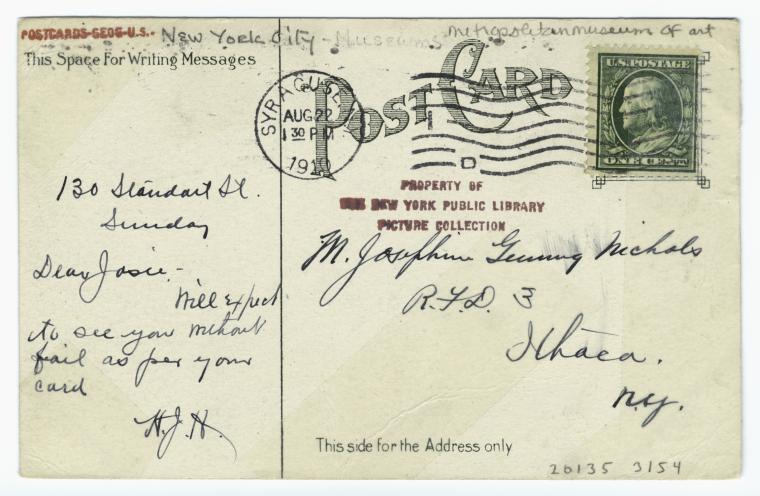 POSTCARDS-GEOG-U.S.- New York City - Museums Metropolitan museum of art
This Space For Writing Messages
POST CARD
U.S. POSTAGE
ONE CENT
SYRACUSE
AUG 22
1 30 PM
1910
D
PROPERTY OF
THE NEW YORK PUBLIC LIBRARY
PICTURE COLLECTION
130 Standart St.
Sunday
Dear Josie-
Will expect
to see you without
fail as per your
card
H.J.H.
M. Josephine Nichols
R.F.D. 3
Ithaca.
N.Y.
This side for the Address only
20135 3154